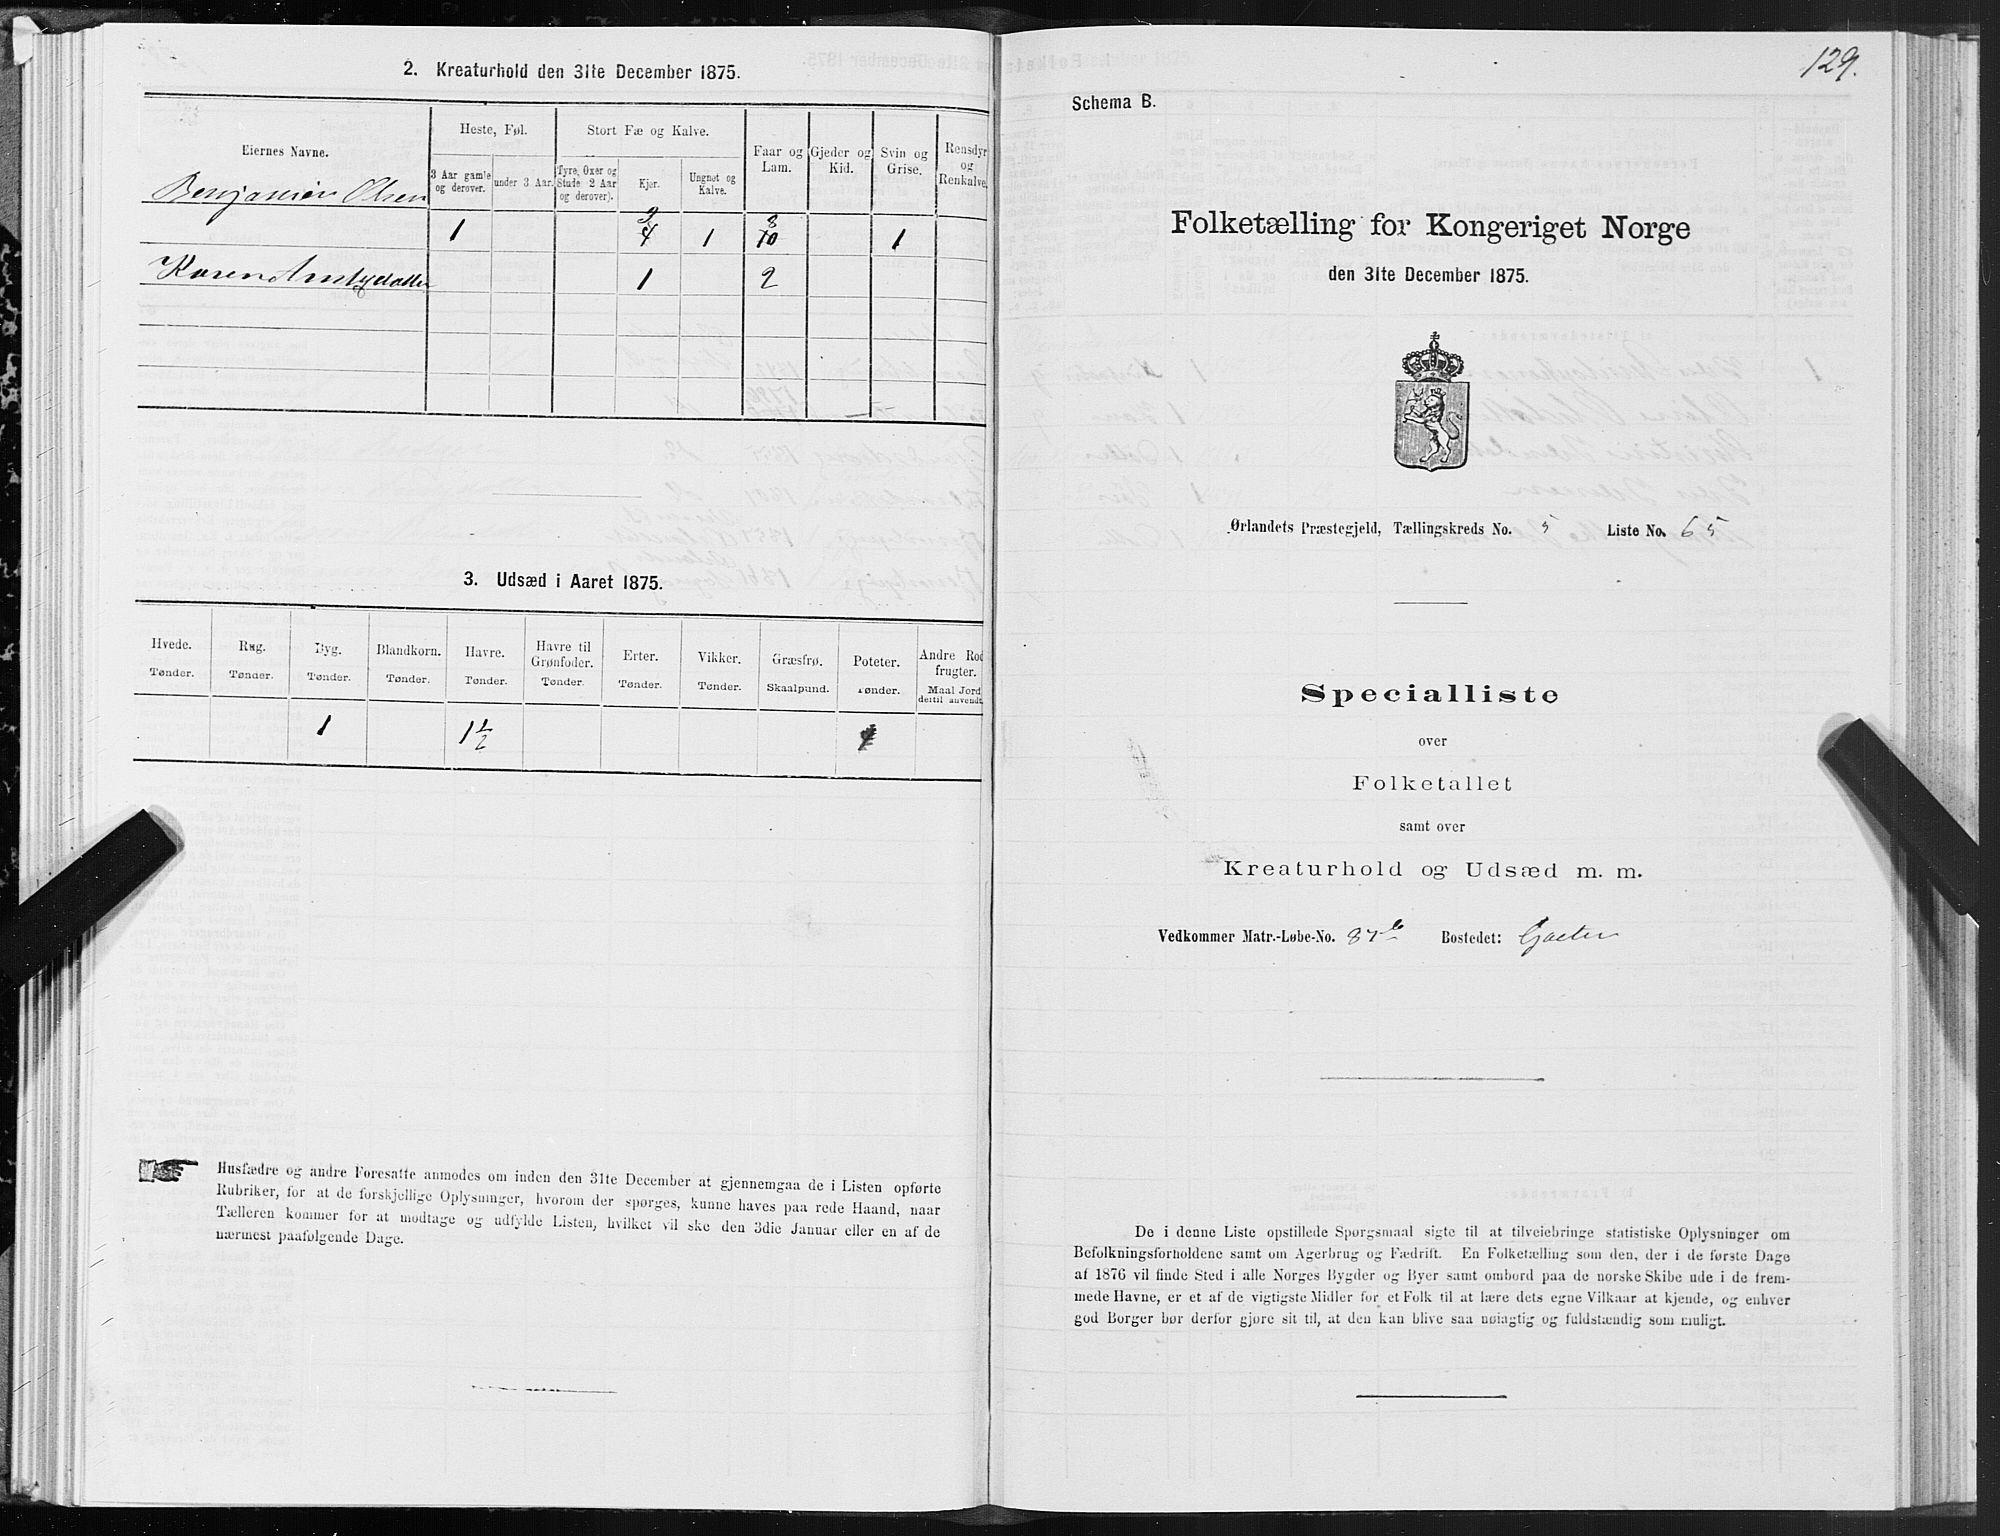 2. Kreaturhold den 31te December 1875.
Eiernes Navne.
Heste, Føl.
Stort Fæ og Kalve.
Faar og Lam.
Gjeder og Kid.
Svin og Grise.
Rensdyr og Renkalve.
3 Aar gamle og derover.
under 3 Aar.
Tyre, Oxer og Stude 2 Aar og derover).
Kjør.
Ungnøt og Kalve.
Benjamin Olsen
3 8
1 4 1 10 1
Karen 1 2
3. Udsæd i Aaret 1875.
Hvede. Rug. Byg. Blandkorn. Havre. Havre til Grønfoder. Erter. Vikker. Græsfrø. Poteter. Andre Rodfrugter.
Tønder. Tønder. Tønder. Tønder. Tønder. Tønder. Tønder. Tønder. Skaalpund. Tønder. Maal Jord dertil anvendt.
1 1 1/2
Husfædre og andre Foresatte anmodes om inden den 31te December at gjennemgaa de i Listen opførte
Rubriker, for at de forskjellige Oplysninger, hvorom der spørges, kunne haves paa rede Haand, naar
Tælleren kommer for at modtage og udfylde Listen, hvilket vil ske den 3die Januar eller en af de
nærmest paafølgende Dage.
129.
Schema B.
Folketælling for Kongeriget Norge
den 31te December 1875.
Ørlandets Præstegjeld, Tællingskreds No. 5 Liste No. 65
Specialliste
over
Folketallet
samt over
Kreaturhold og Udsæd m. m.
Vedkommer Matr.-Løbe-No. 87b Bostedet: Gjæten
De i denne Liste opstillede Spørgsmaal sigte til at tilveiebringe statistiske Oplysninger om
Befolkningsforholdene samt om Agerbrug og Fædrift. En Folketælling som den, der i de første Dage
af 1876 vil finde Sted i alle Norges Bygder og Byer samt ombord paa de norske Skibe ude i de frem-
mede Havne, er et af de vigtigste Midler for et Folk til at lære dets egne Vilkaar at kjende, og enhver
god Borger bør derfor gjøre sit til, at den kan blive saa nøiagtig og fuldstændig som muligt.